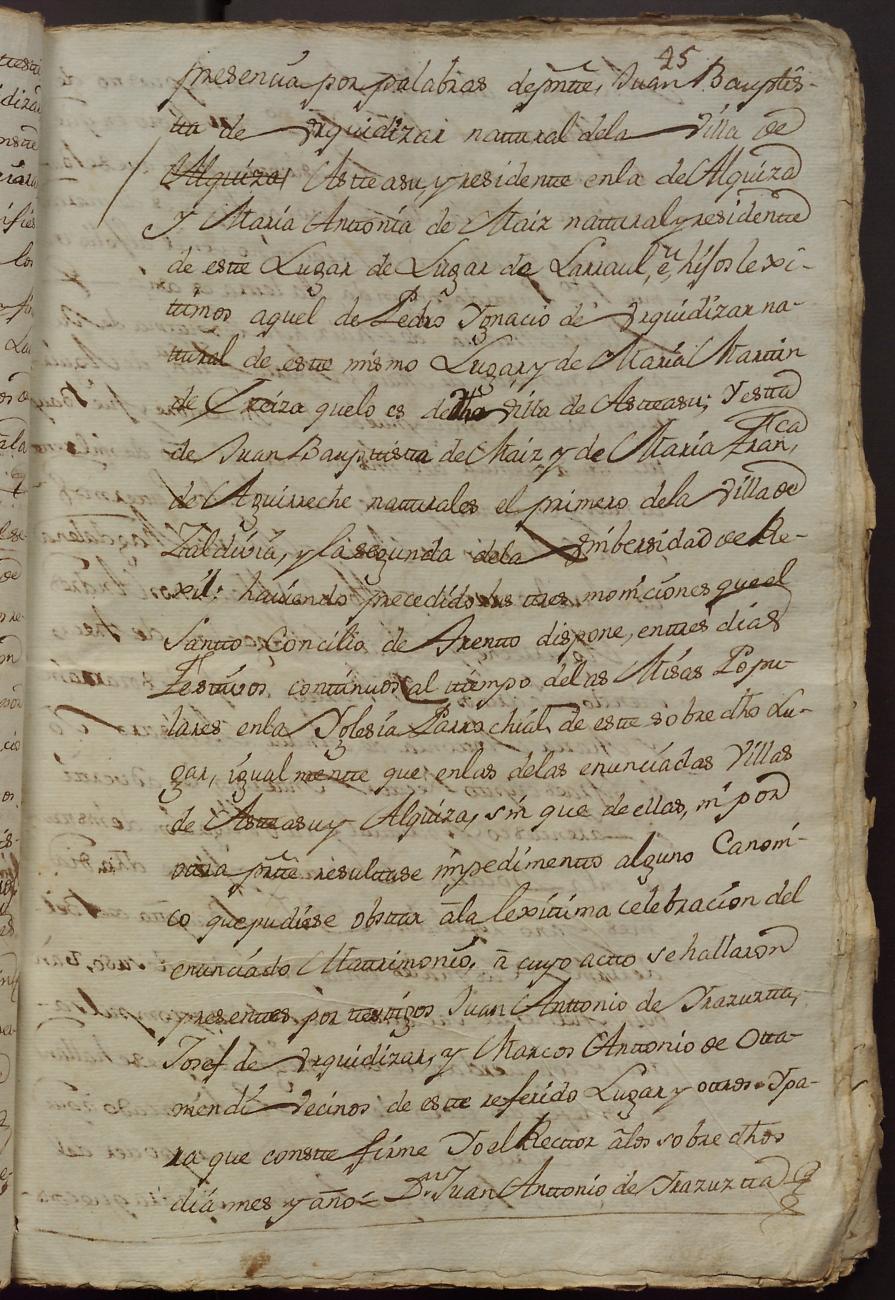 25
presencia por palabras de pntte, Juan Baupttis-
tta de Urquidizar natural dela Villa de
Alquiza Astteasu, y residentte enla de Alquiza
Y Maria Anttonia de Maiz natural y residentte
de estte Lugar de Lugar de Larraul, e, hijos lexi-
ttimos aquel de Pedro Ygnacio de Urquidizar na-
ttural de estte mismo Lugar y de Maria Marttin
de quelo es de dha Villa de Astteasu; Y estta
de Juan Baupttistta de Maiz y de Maria Fran.ca
de Aguirreche natturales el primero dela Villa de
Zaldivia, y la segunda dela Unibersidad de Re-
xil: haviendo precedido las ttres moniciones que el
Santto Concilio de Trentto dispone, entres dias
Festtivos conttinuos al ttiempo delas Misas Popu-
lares enla Yglesia Parrochial de estte sobre dho Lu-
gar, igualmentte que enlas delas enunciadas Villas
de Astteasu y Alquiza, sin que de ellas, ni por
notticia pntte resulttase impedimentto alguno Canoni-
co que pudiese obsttar âla lexittima celebracion del
enunciado Mattrimonio, â cuyo actto se hallaron
presenttes por ttesttigos Juan Anttonio de Yrazuztta,
Josef de Urquidizar, y Marcos Anttonio de Otta-
mendi Vecinos de estte referido Lugar y ottros. Ypa-
ra que constte firme Yo el Recttor âlos sobre dhos
dia mes y año = Dn Juan Anttonio de Yrazuztta